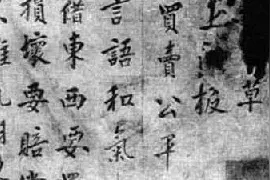 草
上門板
買賣公平
言語和氣
借東西要還
損壞要賠